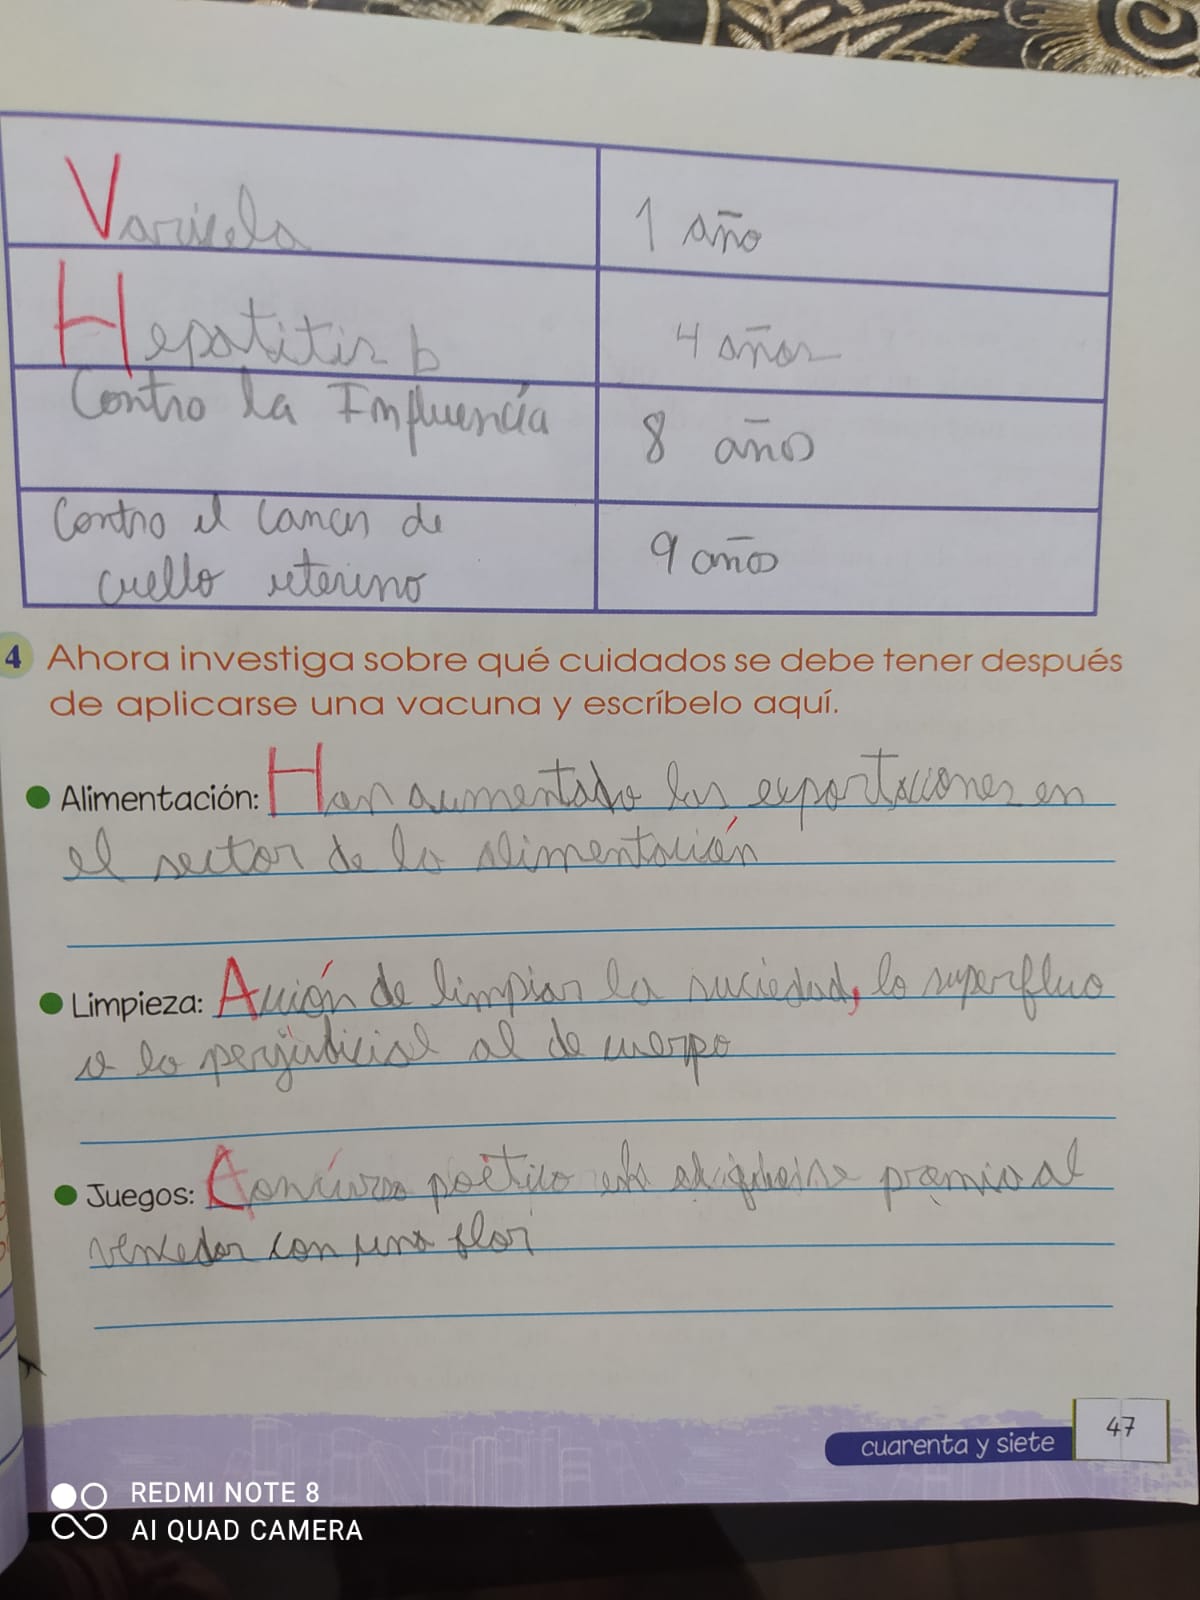 Varicela
1 año
Hepatitis b
4 años
Contra la Imfluencía
8 años
Contra el Cancer de
cuello uterino
9 años
4 Ahora investiga sobre qué cuidados se debe tener después
de aplicarse una vacuna y escríbelo aquí.
Alimentación: Han aumentado las exportaciones en
el sector de la alimentación
Limpieza: Acción de limpiar la suciedad, lo superfluo
o lo perjudicial al de cuerpo
Juegos: poético premio al
vencedor con una flor
cuarenta y siete 47
REDMI NOTE 8
AI QUAD CAMERA